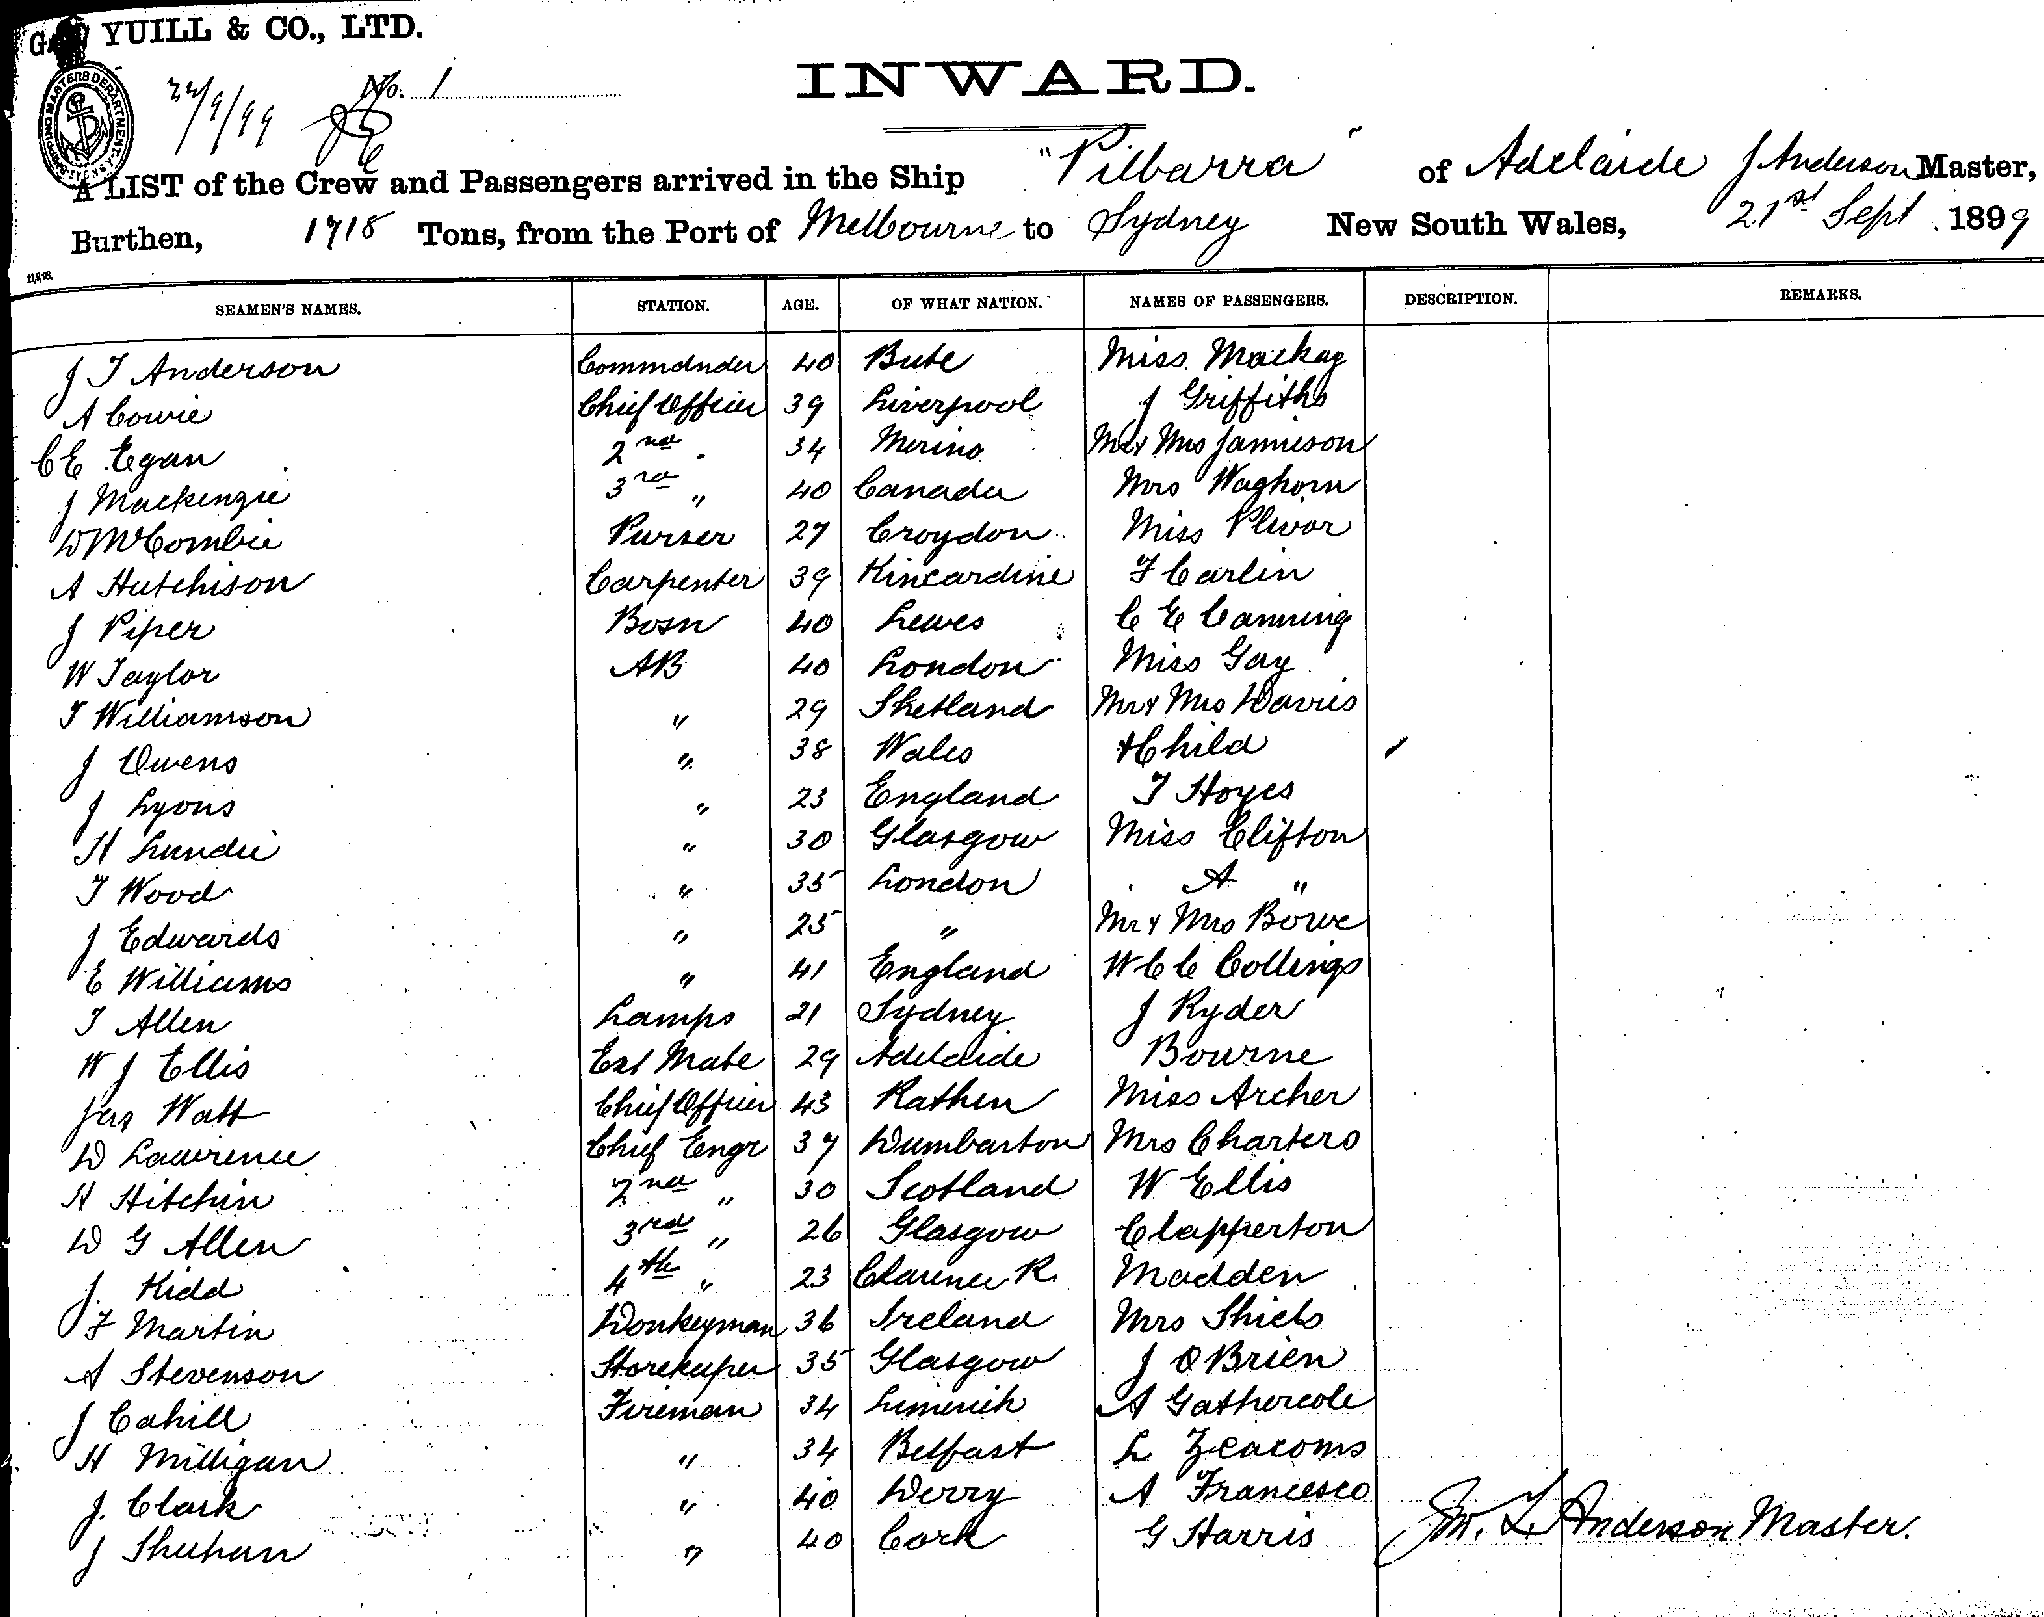 YUILL & CO., LTD.
No. 1
22/9/99
INWARD.
A LIST of the Crew and Passengers arrived in the Ship "Pilbarra" of Adelaide J Anderson Master,
Burthen, 1718 Tons, from the Port of Melbourne to Sydney New South Wales, 21st Sept. 1899
SEAMEN'S NAMES. STATION. AGE. OF WHAT NATION. NAMES OF PASSENGERS. DESCRIPTION. REMARKS.
J T Anderson Commander 40 Bute Miss Mackay
A Cowie Chief Officer 39 Liverpool J Griffiths
C E Egan 2nd " 34 Merino Mr & Mrs Jamieson
J Mackenzie 3rd " 40 Canada Mrs Waghorn
D McCombie Purser 27 Croydon Miss Plivor
A Hutchison Carpenter 39 Kincardine F Carlin
J Piper Bosn 40 Lewes C E Canning
W Taylor AB 40 London Miss Gay
T Williamson " 29 Shetland Mr & Mrs Davies
J Owens " 38 Wales & Child
J Lyons " 23 England T Hoyes
H Lundie " 30 Glasgow Miss Clifton
T Wood " 35 London A "
J Edwards " 25 " Mr & Mrs Bowe
E Williams " 41 England W C C Collings
T Allen Lamps 21 Sydney J Ryder
W J Ellis Ext Mate 29 Adelaide Bourne
Jas Watt Chief Officer 43 Rathen Miss Archer
D Lawrence Chief Engr 37 Dumbarton Mrs Charters
H Hitchin 2nd " 30 Scotland W Ellis
D G Allen 3rd " 26 Glasgow Clapperton
J. Kidd 4th " 23 Clarence R. Madden
F Martin Donkeyman 36 Ireland Mrs Shiels
A Stevenson Storekeeper 35 Glasgow J O'Brien
J Cahill Fireman 34 Limerick A Gathercole
H Milligan " 34 Belfast L Zeacoms
J. Clark " 40 Derry A Francesco
J Sheehan " 40 Cork G Harris
Jno. T. Anderson Master.